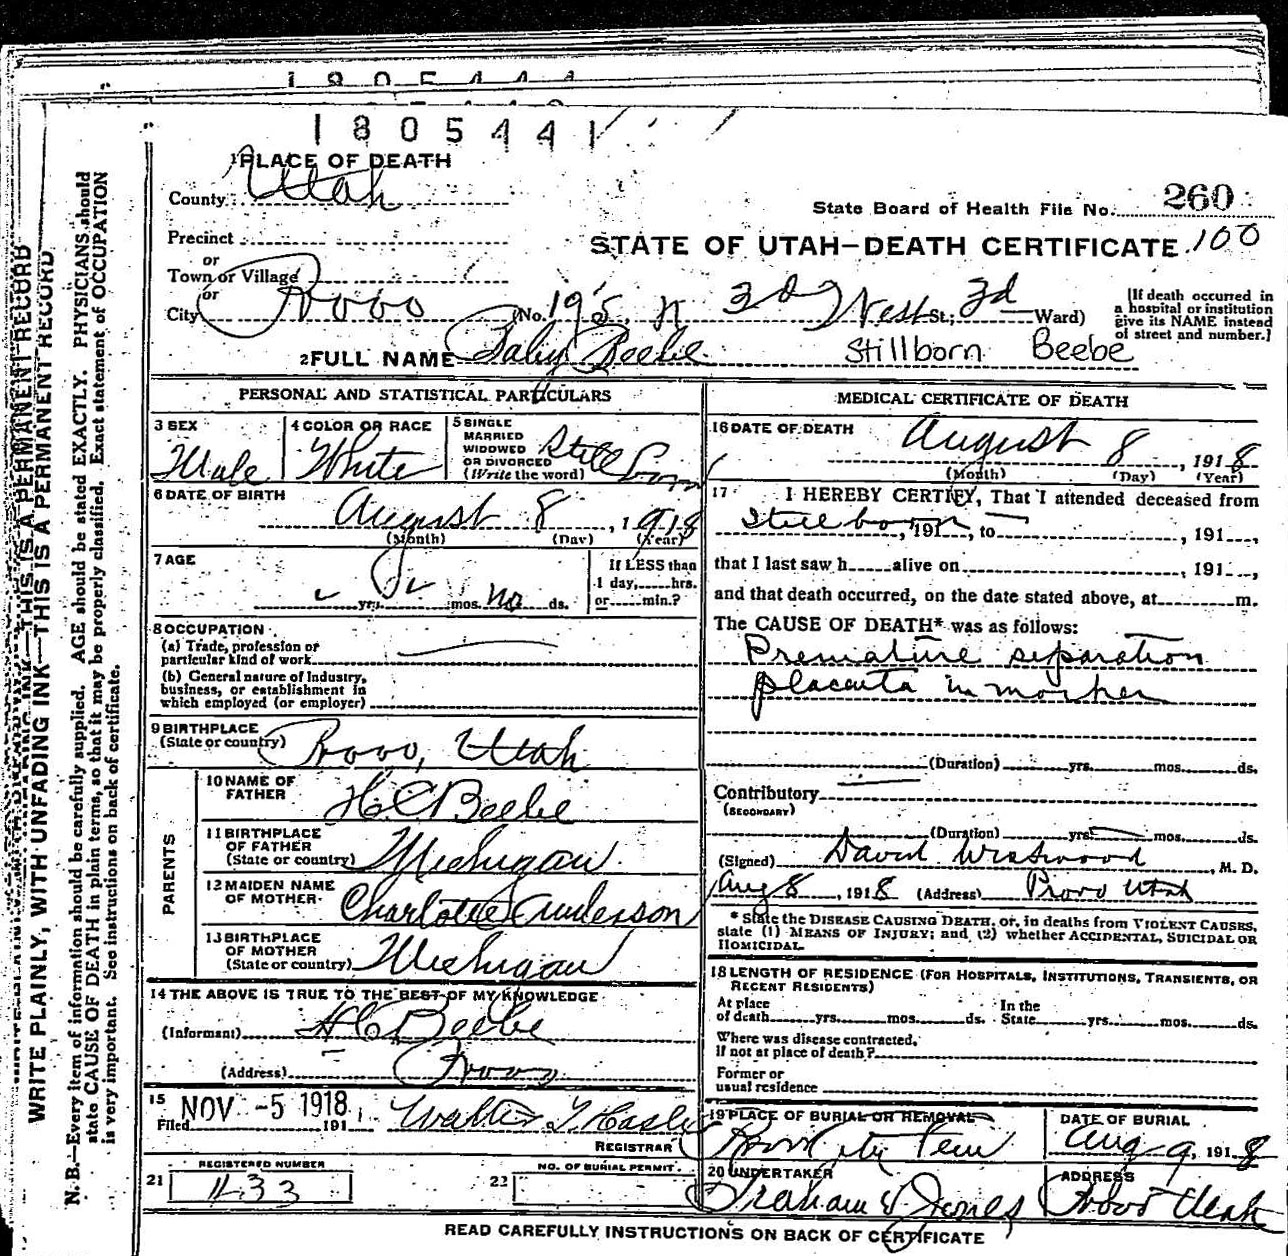 1805441
1 PLACE OF DEATH
County Utah
State Board of Health File No. 260
Precinct
or
STATE OF UTAH—DEATH CERTIFICATE 100
Town or Village
or
City Provo (No. 195 N 3d West St.; 3d Ward)
[If death occurred in
a hospital or institution
give its NAME instead
of street and number.]
2 FULL NAME Baby Beebe Stillborn Beebe
PERSONAL AND STATISTICAL PARTICULARS
3 SEX
Male
4 COLOR OR RACE
White
5 SINGLE
MARRIED
WIDOWED
OR DIVORCED
(Write the word)
Still Born
6 DATE OF BIRTH
August 8, 1918
(Month) (Day) (Year)
7 AGE
yrs. mos. no ds.
If LESS than
1 day, hrs.
or min.?
8 OCCUPATION
(a) Trade, profession or
particular kind of work
(b) General nature of Industry,
business, or establishment in
which employed (or employer)
9 BIRTHPLACE
(State or country) Provo, Utah
PARENTS
10 NAME OF
FATHER H C Beebe
11 BIRTHPLACE
OF FATHER
(State or country) Michigan
12 MAIDEN NAME
OF MOTHER Charlotte Anderson
13 BIRTHPLACE
OF MOTHER
(State or country) Michigan
14 THE ABOVE IS TRUE TO THE BEST OF MY KNOWLEDGE
(Informant) H C Beebe
(Address) Provo
15
Filed NOV -5 1918 191 Walter T Hasler
REGISTRAR
21 REGISTERED NUMBER
1433
22 NO. OF BURIAL PERMIT
MEDICAL CERTIFICATE OF DEATH
16 DATE OF DEATH
August 8, 1918
(Month) (Day) (Year)
17 I HEREBY CERTIFY, That I attended deceased from
Stillborn, 191 , to , 191 ,
that I last saw h alive on , 191 ,
and that death occurred, on the date stated above, at m.
The CAUSE OF DEATH* was as follows:
Premature separation
placenta in mother
(Duration) yrs. mos. ds.
Contributory
(SECONDARY)
(Duration) yrs. mos. ds.
(Signed) David Westwood, M. D.
Aug 8, 1918 (Address) Provo Utah
* State the DISEASE CAUSING DEATH, or, in deaths from VIOLENT CAUSES,
state (1) MEANS OF INJURY; and (2) whether ACCIDENTAL, SUICIDAL OR
HOMICIDAL.
18 LENGTH OF RESIDENCE (FOR HOSPITALS, INSTITUTIONS, TRANSIENTS, OR
RECENT RESIDENTS)
At place
of death yrs. mos. ds.
In the
State yrs. mos. ds.
Where was disease contracted,
if not at place of death?
Former or
usual residence
19 PLACE OF BURIAL OR REMOVAL
Provo City Cem
DATE OF BURIAL
Aug 9, 1918
20 UNDERTAKER
Graham & Jones
ADDRESS
Provo Utah
READ CAREFULLY INSTRUCTIONS ON BACK OF CERTIFICATE
WRITE PLAINLY, WITH UNFADING INK—THIS IS A PERMANENT RECORD
N. B.—Every item of information should be carefully supplied. AGE should be stated EXACTLY. PHYSICIANS should
state CAUSE OF DEATH in plain terms, so that it may be properly classified. Exact statement of OCCUPATION
is very important. See instructions on back of certificate.